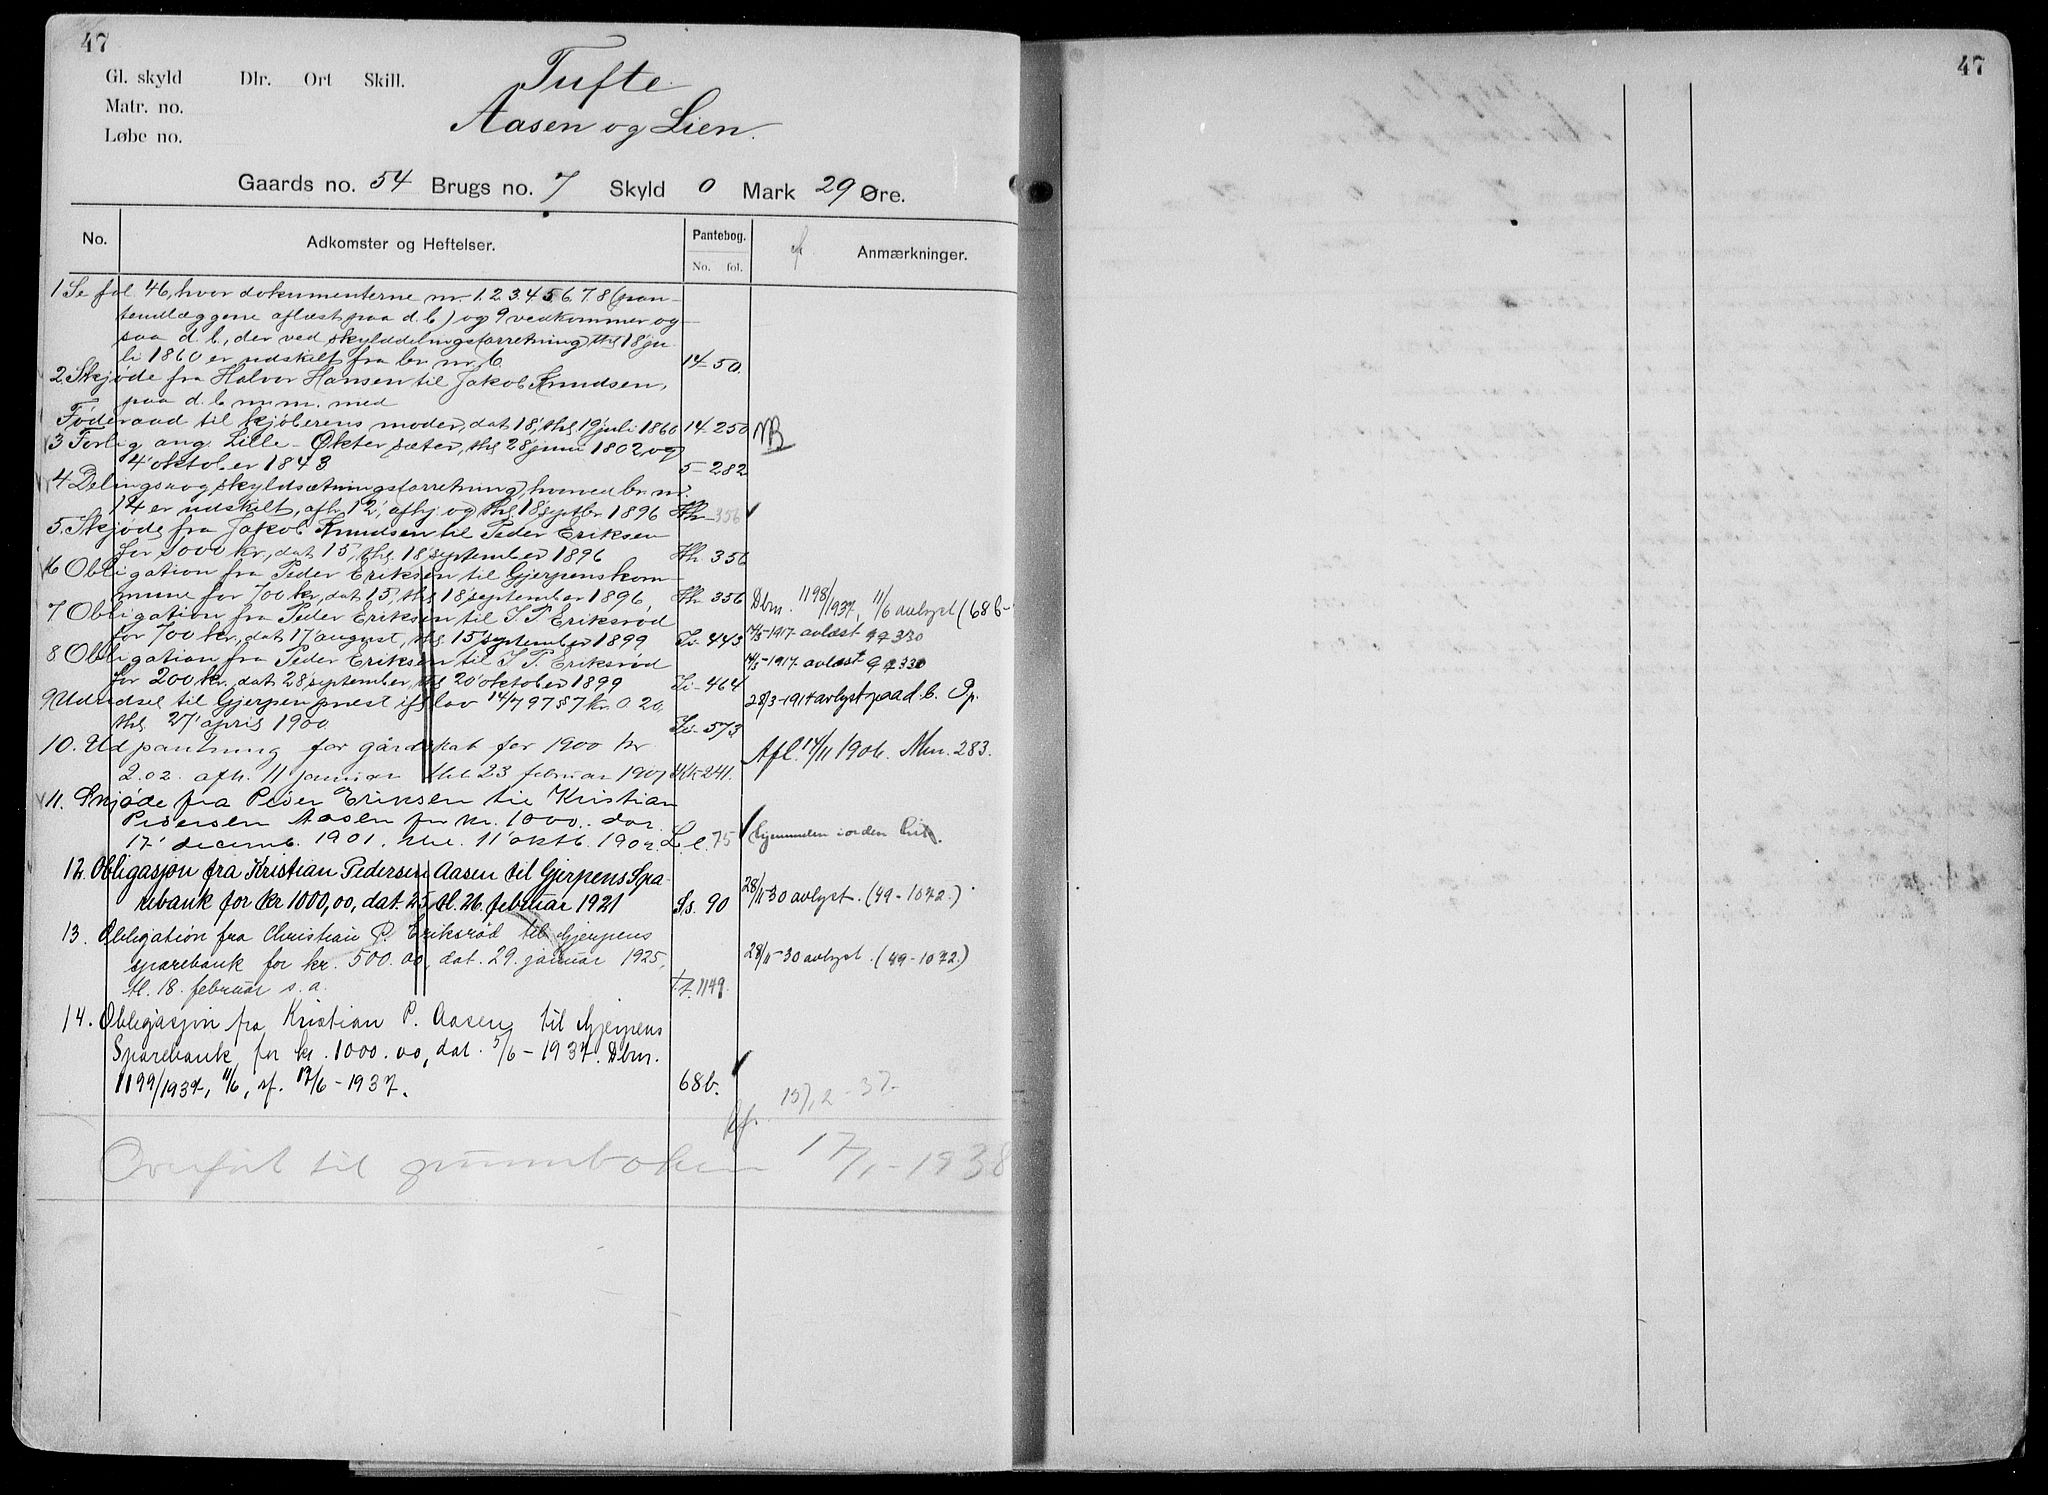 47
47
Gl. skyld Dlr. Ort Skill.
Matr. no.
Løbe no.
Tufte
Aasen og Lien.
Gaards no. 54 Brugs no. 7 Skyld 0 Mark 29 Øre.
No. Adkomster og Heftelser. Pantebog. Anmærkninger.
No. fol.
1 Se fol. 46, hvor dokumenterne nr. 1. 2. 3. 4 5. 6. 7. 8 (pan-
teudlæggene aflæst paa d. b.) og 9 vedkommer og-
saa d. b., der ved skylddelingsforretning, thl 18 ju-
li 1860 er udskilt fra br. nr. 6 14-50.
2 Skjøde fra Halvor Hansen til Jakob Knudsen,
paa d. b. m. m. med
Føderaad til kjøberens moder, dat 18', thl 19' juli 1860 14-250 NB
3 Forlig ang. Lille-Økter sæter, thl 28' juni 1802 og
4' oktober 1843 5-282
4 Delings og skyldsætningsforretning, hvorved br. nr.
14 er udskilt, afh. 12', afhj og thl 18' septbr 1896 Hh-356
5 Skjøde fra Jakob Knudsen til Peder Eriksen
for 1000 kr., dat 15', thl 18' september 1896 Hh 356
6 Obligation fra Peder Eriksen til Gjerpens kom-
mune for 700 kr, dat 15', thl 18' september 1896, Hh 356 Dbm. 1198/1937, 11/6 avlyst (68b-
7 Obligation fra Peder Eriksen til I. P. Eriksrød
for 700 kr., dat 17' august, thl 15' september 1899 Ii-443 14/5-1917 avlæst Qq 330
8 Obligation fra Peder Eriksen til I. P. Eriksrød 14/5-1917 avlæst Qq 330
for 200 kr., dat 28' september, thl 20' oktober 1899 Ii-464
9 Udredsel til Gjerpen prest ifl lov 14/7 97 § 7 kr. 0.20, 28/3-1914 avlyst paa d. b. Pp.
thl 27' april 1900 Ii-573
10. Udpantning for gårdskat for 1900 kr
2.02. afh. 11 januar thl 23 februar 1901 Kk 241. Afl. 14/11 1906. Mm. 283.
11. Skjøde fra Peder Eriksen til Kristian
Pedersen Aasen for kr. 1000.. dat.
17' decemb. 1901, thl. 11' oktb. 1902. L. l. 75 hjemmelen i orden
12. Obligasjon fra Kristian Pedersen Aasen til Gjerpens Spa-
rebank for kr 1000,00, dat. 25, tl. 26. februar 1921 Ss. 90 28/11-30 avlyst. (49-1072.)
13. Obligation fra Christian P. Eriksrød til Gjerpens
sparebank for kr. 500.00, dat. 29. januar 1925, 28/11-30 avlyst. (49-1072.)
tl. 18. februar s. a. 1149.
14. Obligasjon fra Kristian P. Aasen til Gjerpens
Sparebank for kr. 1000.00, dat. 5/6-1937. Dbm.
1199/1937, 11/6, rf. 12/6-1937. 68b.
15/12-37.
Overført til grunnboken 17/1-1938